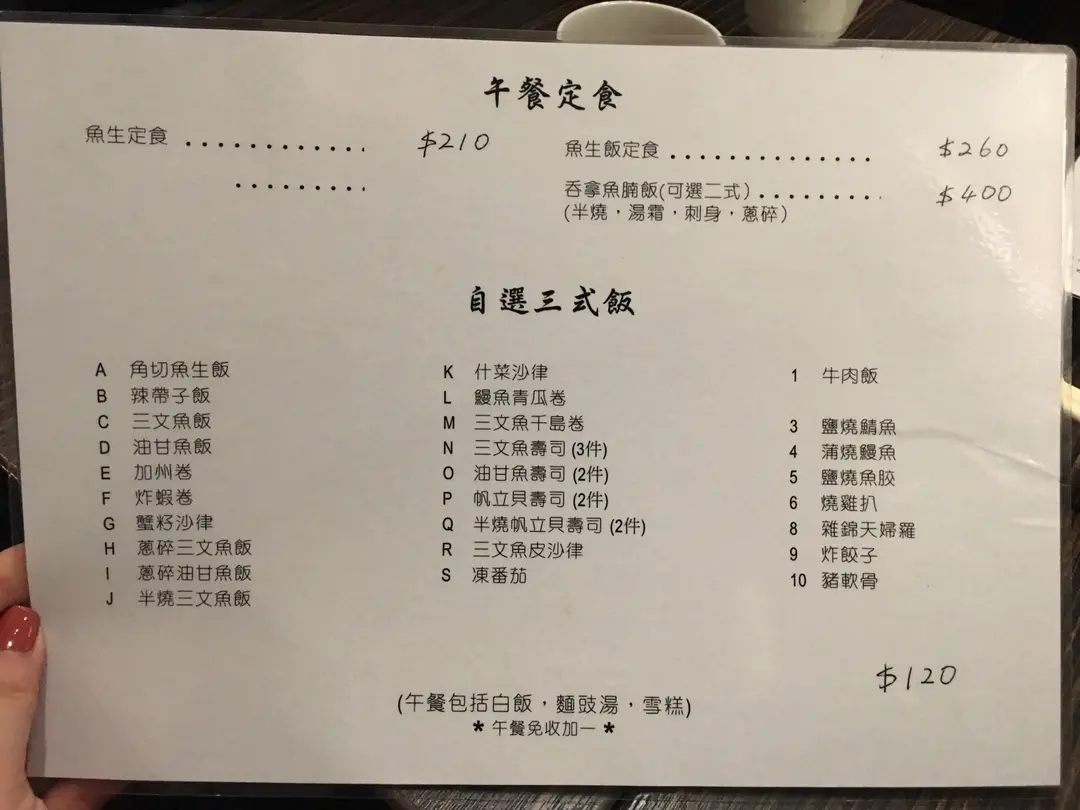 午餐定食
魚生定食 ............ $210
.........
魚生飯定食 .............. $260
吞拿魚腩飯(可選二式) ......... $400
(半燒，湯霜，刺身，蔥碎)
自選三式飯
A 角切魚生飯
B 辣帶子飯
C 三文魚飯
D 油甘魚飯
E 加州卷
F 炸蝦卷
G 蟹籽沙律
H 蔥碎三文魚飯
I 蔥碎油甘魚飯
J 半燒三文魚飯
K 什菜沙律
L 鰻魚青瓜卷
M 三文魚千島卷
N 三文魚壽司 (3件)
O 油甘魚壽司 (2件)
P 帆立貝壽司 (2件)
Q 半燒帆立貝壽司 (2件)
R 三文魚皮沙律
S 凍番茄
1 牛肉飯
3 鹽燒鯖魚
4 蒲燒鰻魚
5 鹽燒魚胶
6 燒雞扒
8 雜錦天婦羅
9 炸餃子
10 豬軟骨
$120
(午餐包括白飯，麵豉湯，雪糕)
* 午餐免收加一 *